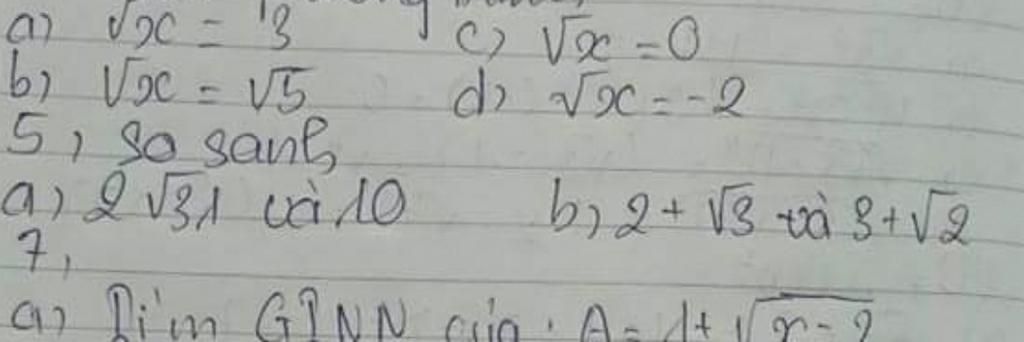 a) √x = 3 c) √x = 0
b) √x = √5 d) √x = -2
5, so sanh
a) 2√31 và 10 b, 2 + √3 và 3 + √2
7,
a) Tìm GTNN của : A = 1 + √x - 2